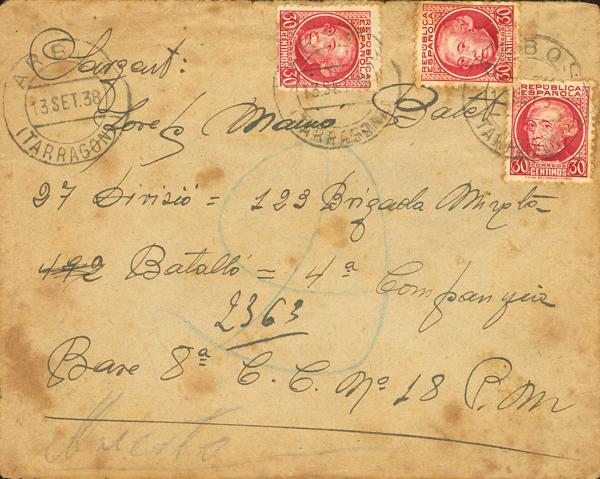 Sargent:
ARBOS
13 SET. 38
(TARRAGONA)
30 CENTIMOS
CORREOS
REPUBLICA ESPAÑOLA
REPUBLICA ESPAÑOLA
30 CENTIMOS
REPUBLICA ESPAÑOLA
CORREOS
30 CENTIMOS 30
TARRAGONA
Batet
27 Divisió = 123 Brigada Mixta
492 Batalló = 4ª Companyia
2363
Base 8ª C. C. Nº 18 P.M